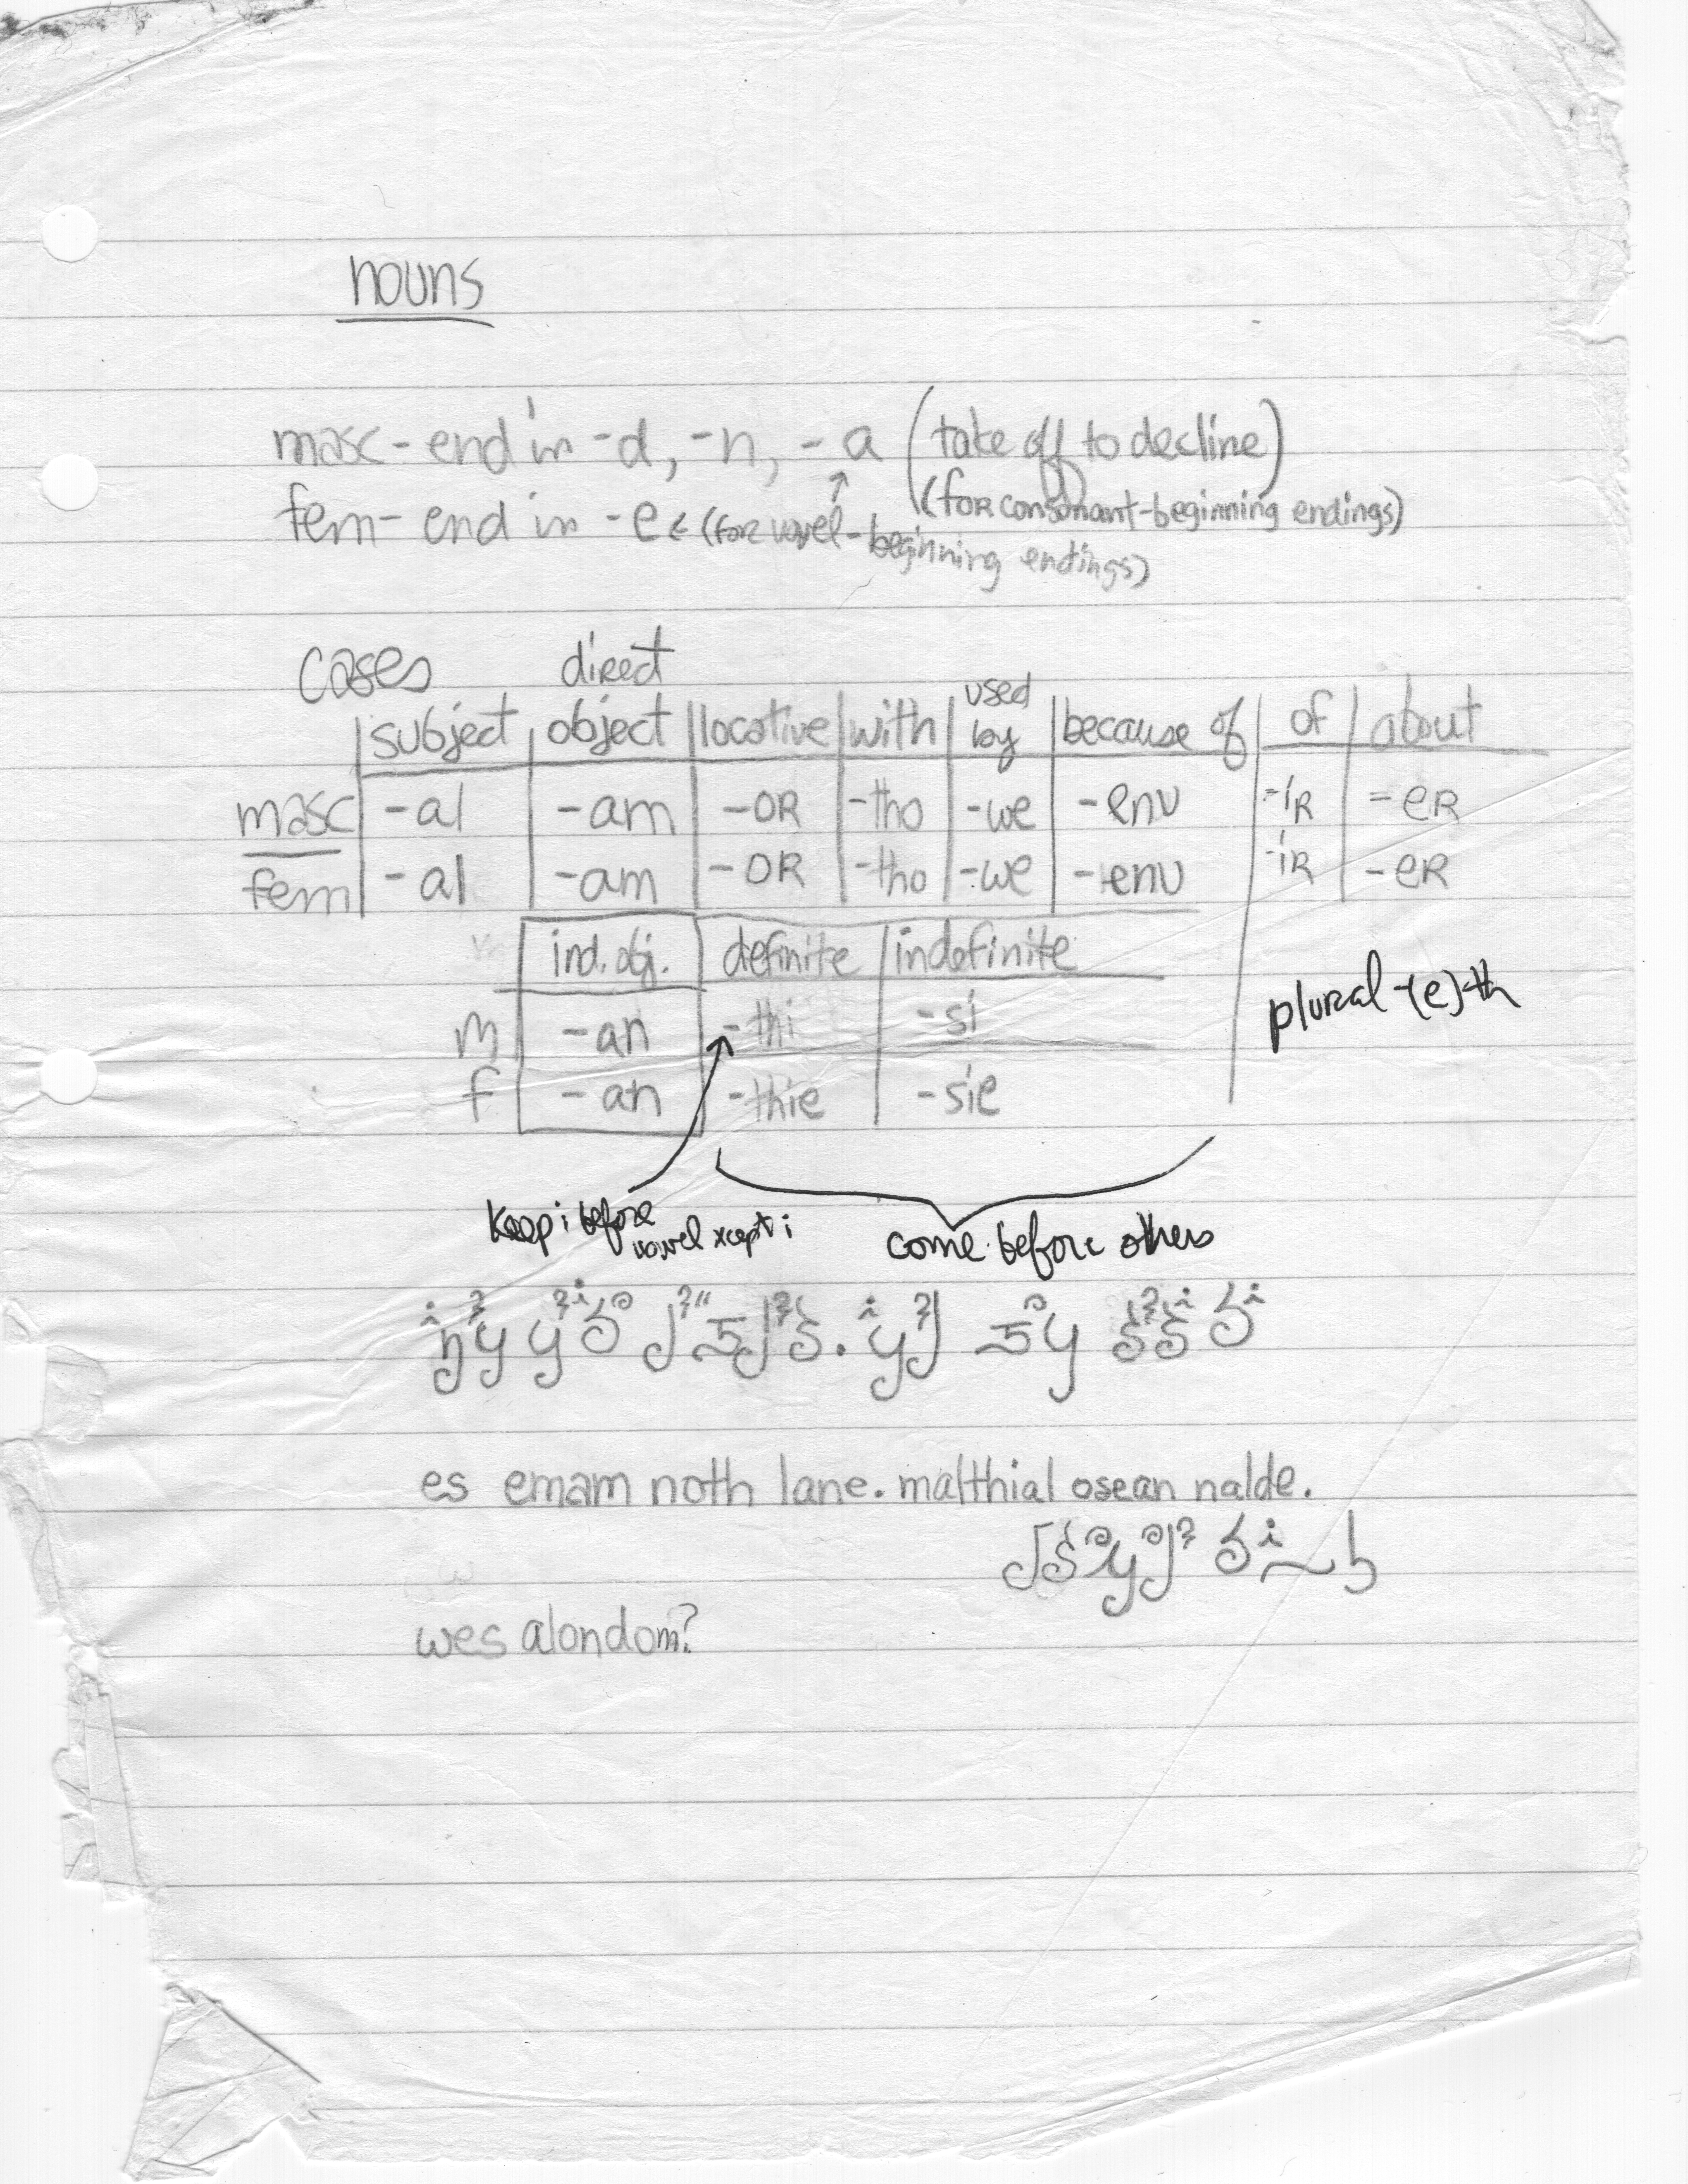 nouns
masc - end in -d, -n, - a (take off to decline)
(for consonant-beginning endings)
fem - end in -e ← (for vowel-beginning endings)
cases
subject | direct object | locative | with | used by | because of | of | about
masc | -al | -am | -OR | -tho | -we | -env | -iR | -eR
fem | -al | -am | -OR | -tho | -we | -env | -iR | -eR
ind. obj. | definite | indefinite
m | -an | -thi | -si
plural -(e)-th
f | -an | -thie | -sie
Keep i before vowel xcept i
come before others
es emam noth lane. malthial osean nalde.
wes alondom?